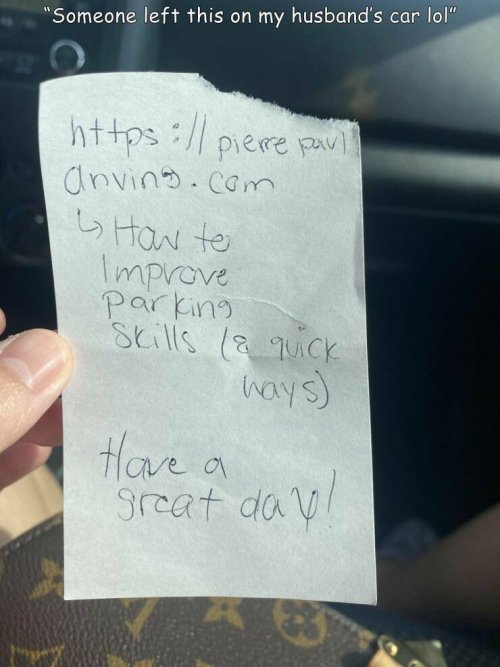 "Someone left this on my husband's car lol"
https://pierre paul
driving.com
↳ How to
Improve
parking
Skills (8 quick
ways)
Have a
great day!